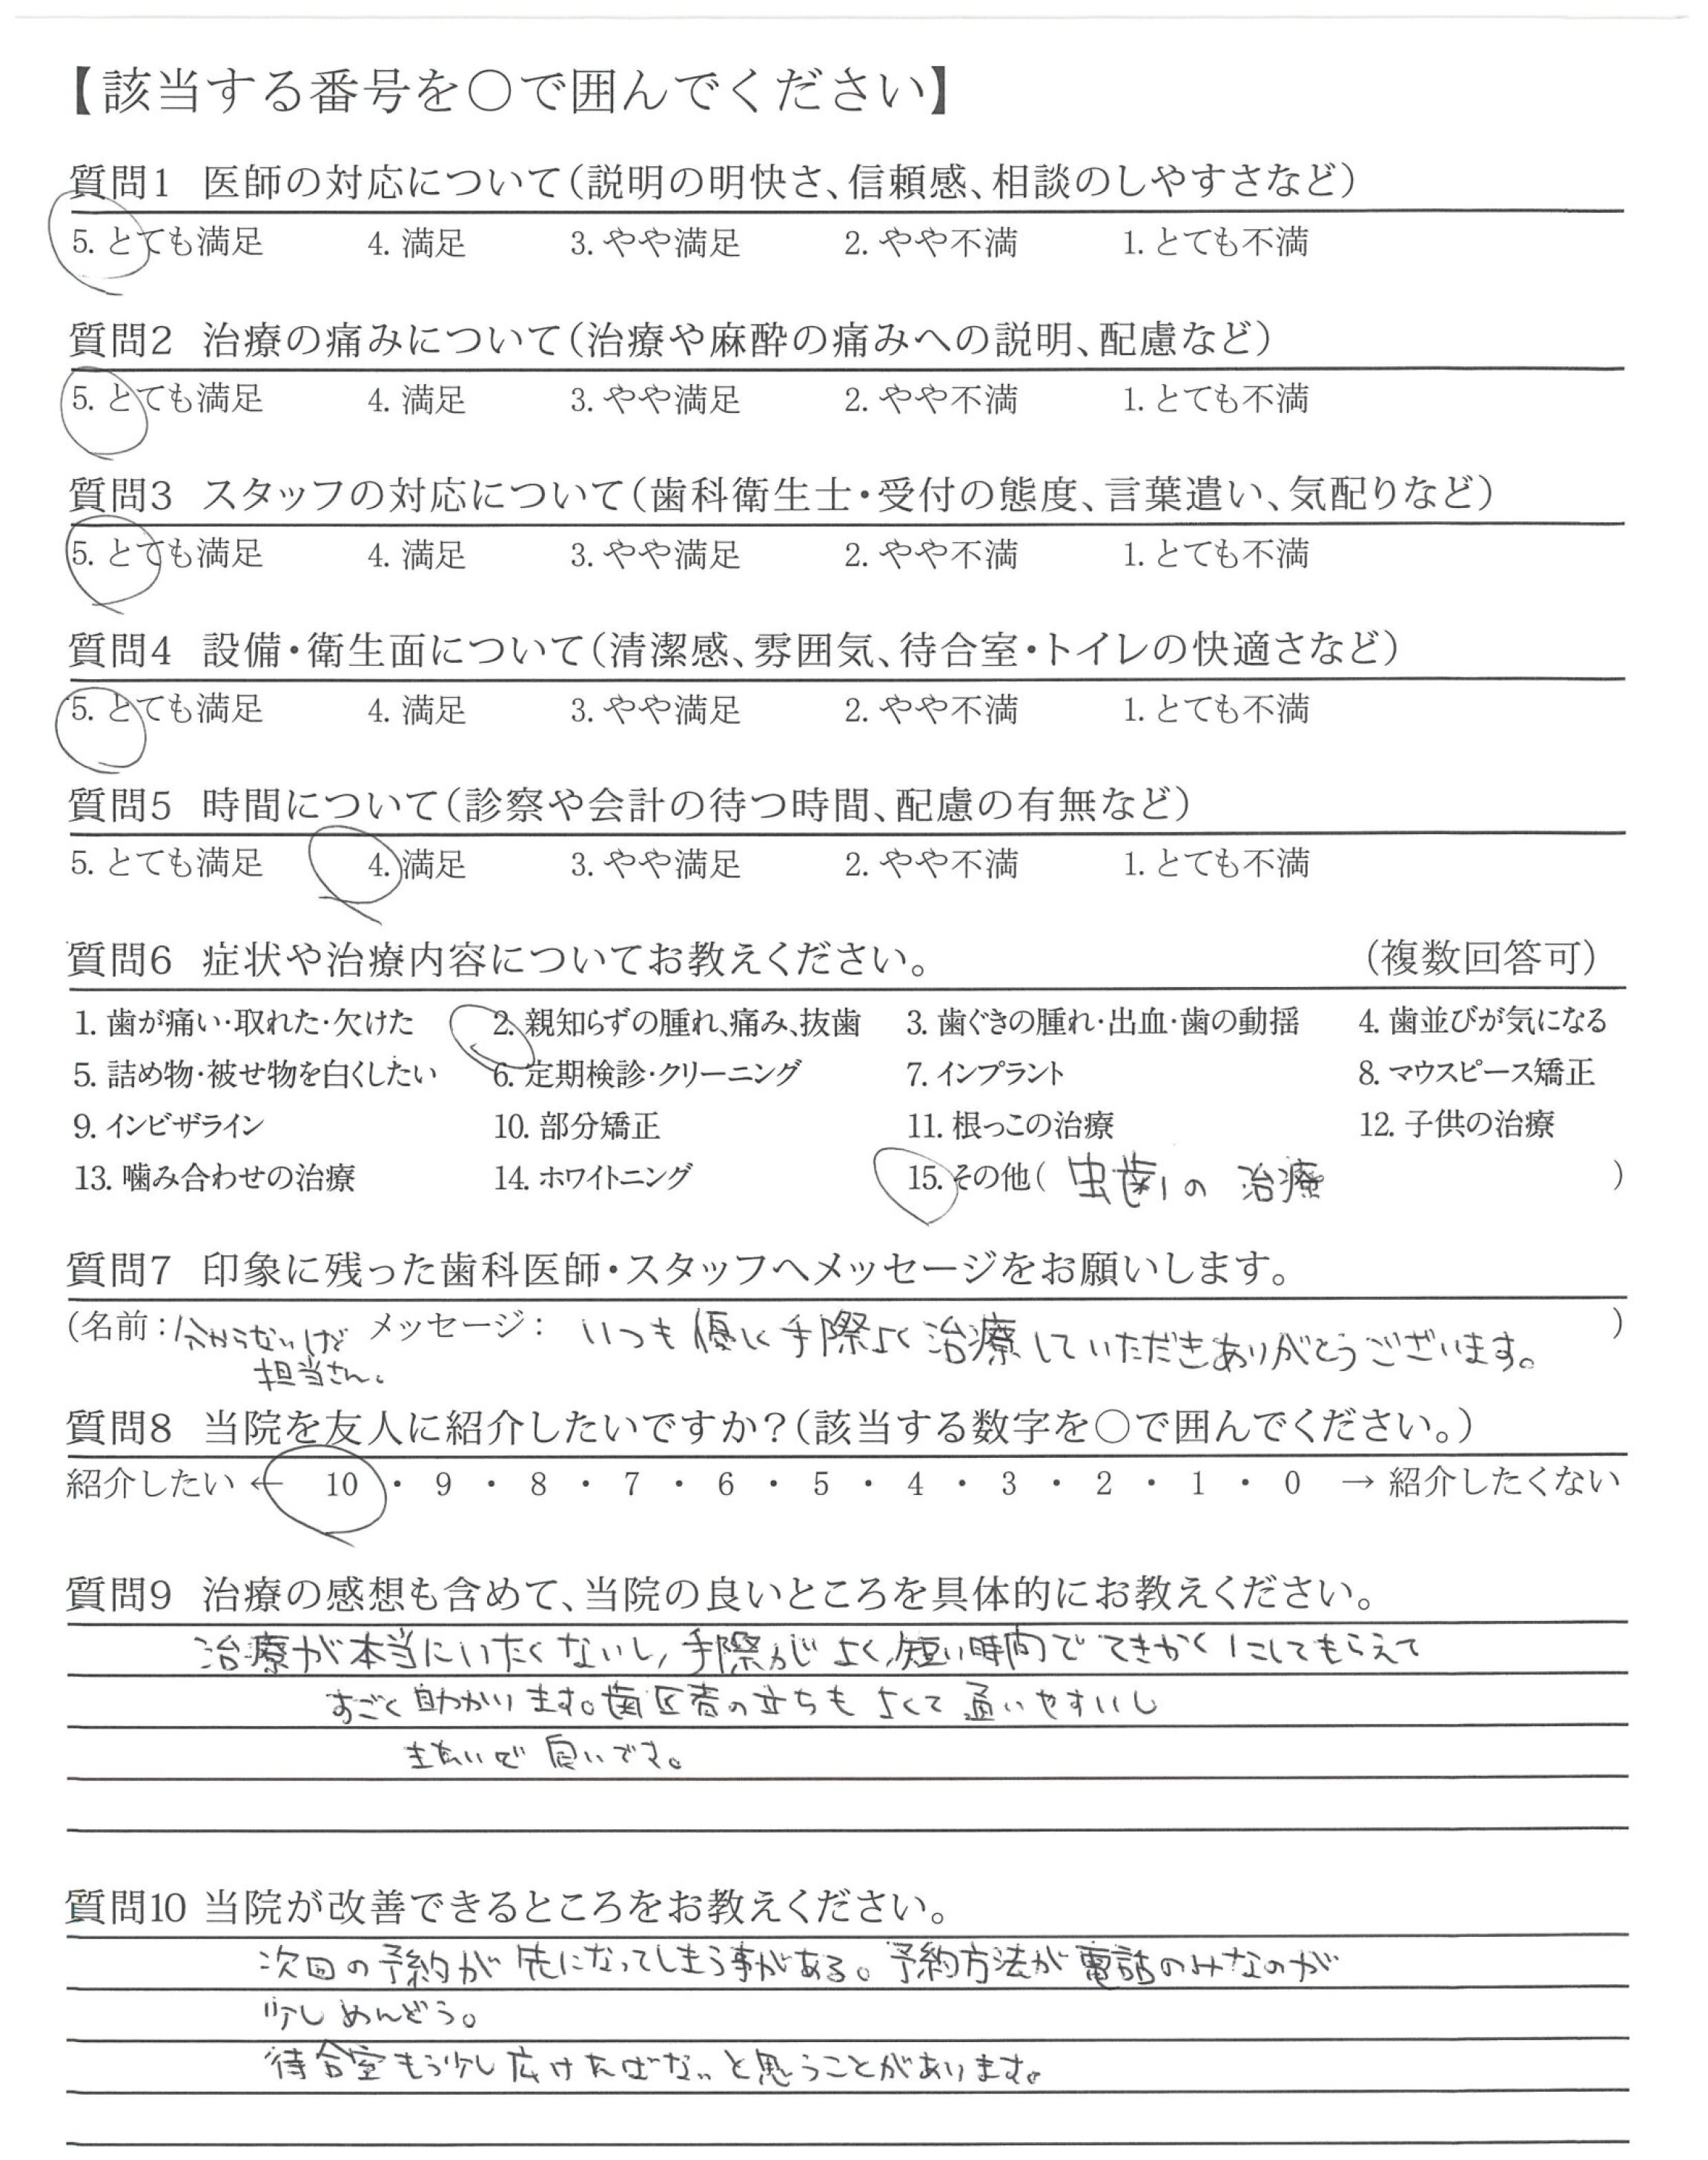 【該当する番号を○で囲んでください】
質問1 医師の対応について(説明の明快さ、信頼感、相談のしやすさなど)
5. とても満足 4. 満足 3. やや満足 2. やや不満 1. とても不満
質問2 治療の痛みについて(治療や麻酔の痛みへの説明、配慮など)
5. とても満足 4. 満足 3. やや満足 2. やや不満 1. とても不満
質問3 スタッフの対応について(歯科衛生士・受付の態度、言葉遣い、気配りなど)
5. とても満足 4. 満足 3. やや満足 2. やや不満 1. とても不満
質問4 設備・衛生面について(清潔感、雰囲気、待合室・トイレの快適さなど)
5. とても満足 4. 満足 3. やや満足 2. やや不満 1. とても不満
質問5 時間について(診察や会計の待つ時間、配慮の有無など)
5. とても満足 4. 満足 3. やや満足 2. やや不満 1. とても不満
質問6 症状や治療内容についてお教えください。 (複数回答可)
1. 歯が痛い・取れた・欠けた 2. 親知らずの腫れ、痛み、抜歯 3. 歯ぐきの腫れ・出血・歯の動揺 4. 歯並びが気になる
5. 詰め物・被せ物を白くしたい 6. 定期検診・クリーニング 7. インプラント 8. マウスピース矯正
9. インビザライン 10. 部分矯正 11. 根っこの治療 12. 子供の治療
13. 噛み合わせの治療 14. ホワイトニング 15. その他( 虫歯の 治療 )
質問7 印象に残った歯科医師・スタッフへメッセージをお願いします。
(名前:分からないけど メッセージ: いつも優しく手際よく治療していただきありがとうございます。 )
担当さん。
質問8 当院を友人に紹介したいですか?(該当する数字を○で囲んでください。)
紹介したい ← 10 ・ 9 ・ 8 ・ 7 ・ 6 ・ 5 ・ 4 ・ 3 ・ 2 ・ 1 ・ 0 → 紹介したくない
質問9 治療の感想も含めて、当院の良いところを具体的にお教えください。
治療が本当にいたくないし、手際がよく、短い時間でてきかくにしてもらえて
すごく助かります。歯医者の立ちもよくて通いやすいし
きれいで良いです。
質問10 当院が改善できるところをお教えください。
次回の予約が先になってしまう事がある。予約方法が電話のみなのが
少しめんどう。
待合室もう少し広ければな、と思うことがあります。